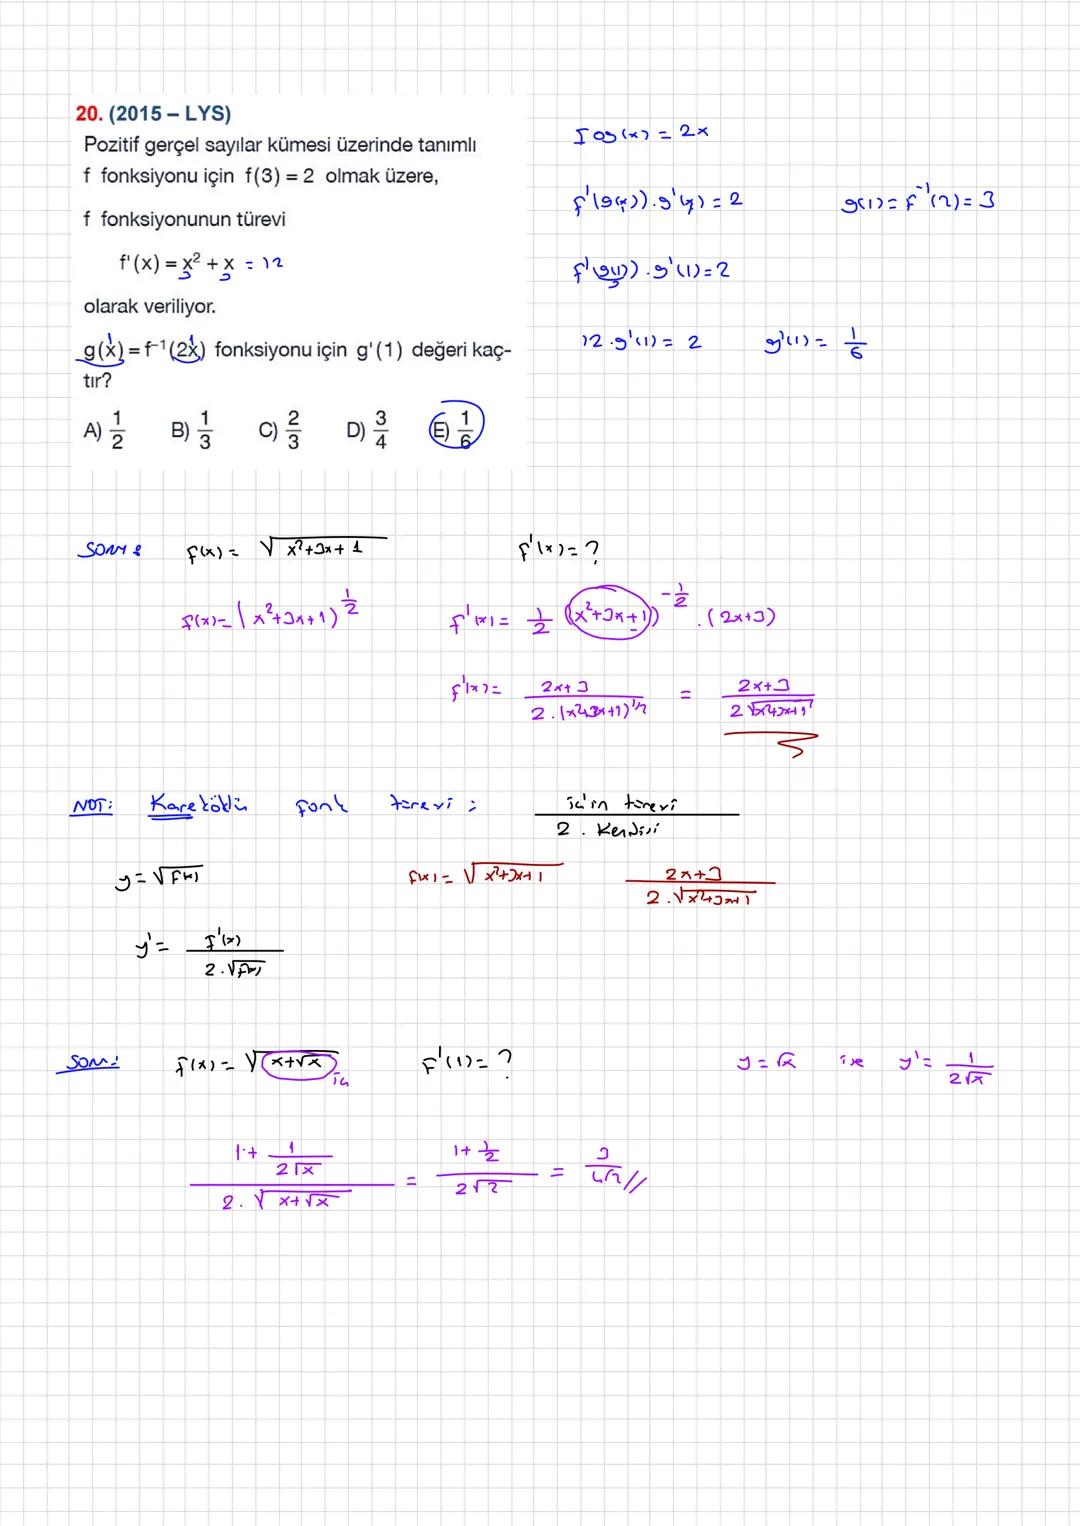 20. (2015 – LYS)
Pozitif gerçel sayılar kümesi üzerinde tanımlı
f fonksiyonu için f(3) = 2 olmak üzere,
f fonksiyonunun türevi
f'(x) = x² + x = 12
3 3
olarak veriliyor.
1 1
g(x) = f⁻¹(2x) fonksiyonu için g'(1) değeri kaç-
tır?
A) 1/2 B) 1/3 C) 2/3 D) 3/4 E) 1/6
fog(x) = 2x
f'(g(x)).g'(x) = 2 g(1) = f⁻¹(2) = 3
f'(g(1)).g'(1) = 2
3
12.g'(1) = 2 g'(1) = 1/6
SORU: f(x) = √(x²+3x+1) f'(x) = ?
f(x) = (x²+3x+1)^(1/2) f'(x) = 1/2 (x²+3x+1)^(-1/2) . (2x+3)
f'(x) = (2x+3)/(2.(x²+3x+1)^(1/2)) = (2x+3)/(2√(x²+3x+1))
NOT: Kareköklü fonk türevi : için türevi / 2 . Kendisi
y = √f(x) f(x) = √(x²+3x+1) (2x+3)/(2.√(x²+3x+1))
y' = f'(x)/(2.√f(x))
SORU: f(x) = √(x+√x) iç f'(1) = ? y = √x ise y' = 1/(2√x)
(1+1/(2√x))/(2.√(x+√x)) = (1+1/2)/(2√2) = 3/(4√2) //